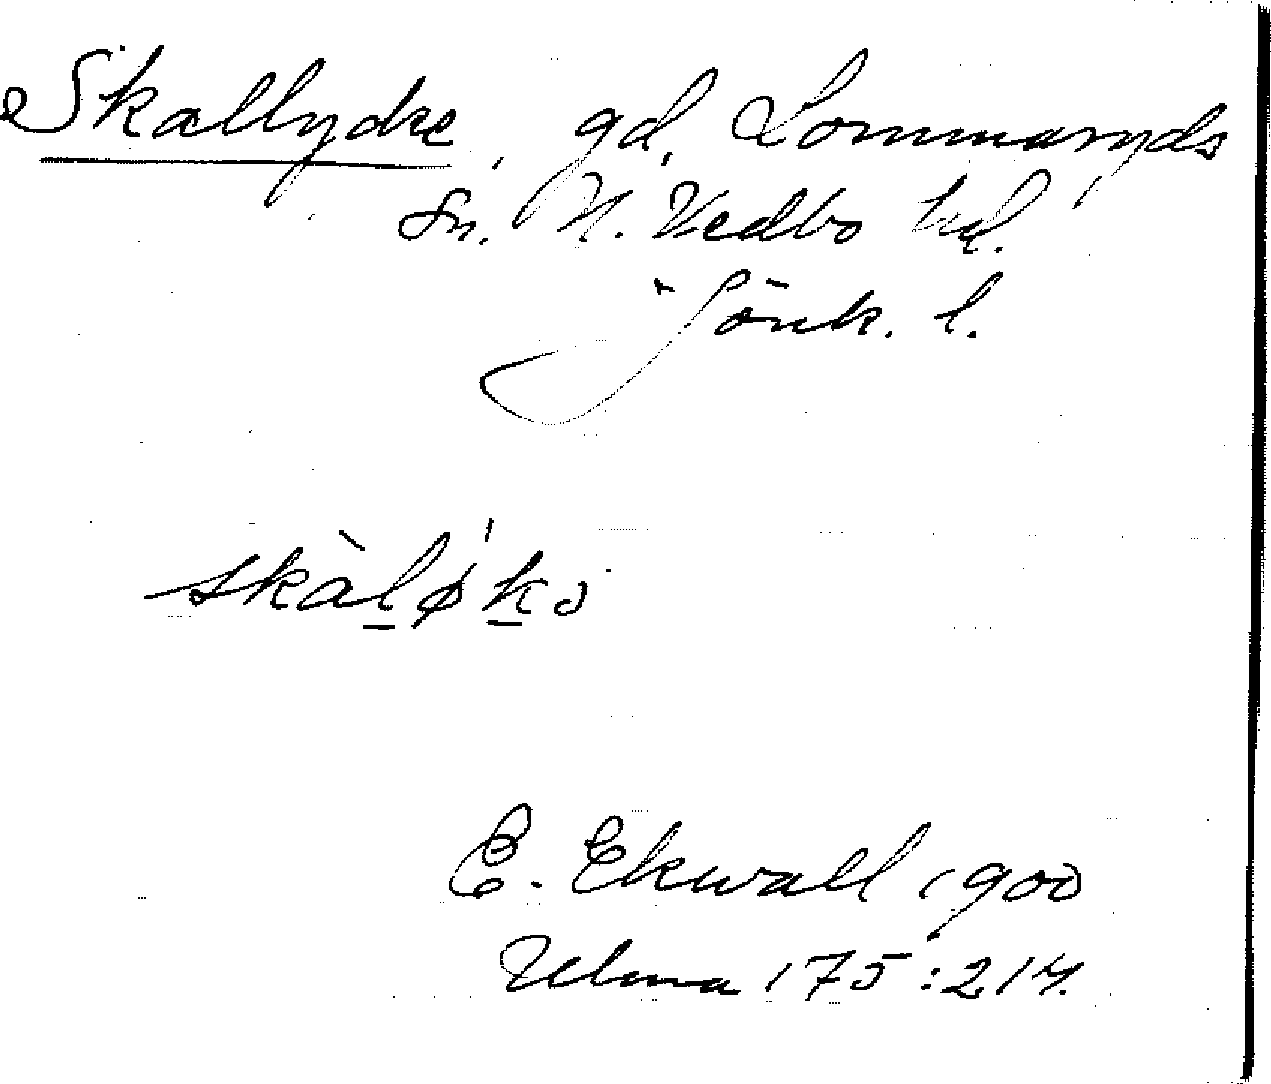 Skallydke, gd, Lommaryds
sn. N. Vedbo hd.
Jönk. l.
skàlǿkə
E. Ekwall 1900
Ulma 175:214.